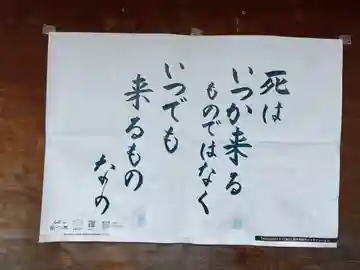 死は
いつか来る
ものではなく
いつでも
来るもの
なの